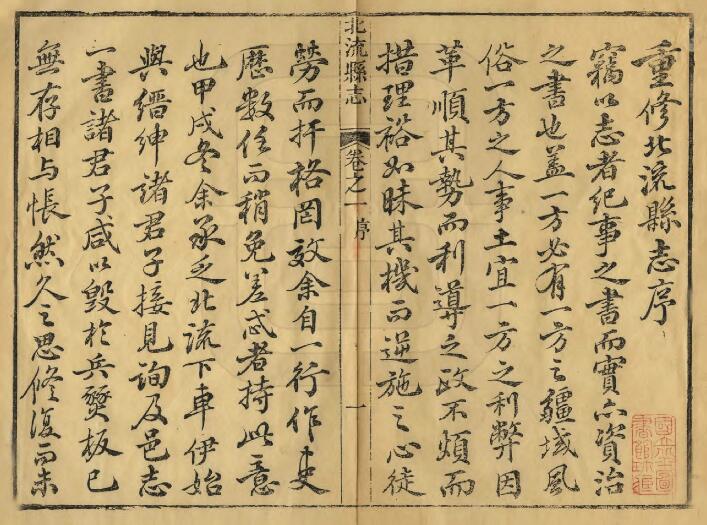 重修北流縣志序
竊以志者紀事之書而實亦資治
之書也蓋一方必有一方之疆域風
俗一方之人事土宜一方之利弊因
革順其勢而利導之政不煩而
措理裕如昧其機而逆施之心徒
北流縣志
卷之一 序
一
勞而扞格罔效余自一行作吏
歷數任而稍免差忒者持此意
也甲戌冬余承乏北流下車伊始
與縉紳諸君子接見詢及邑志
一書諸君子咸以毀於兵燹板已
無存相与悵然久之思修復而未